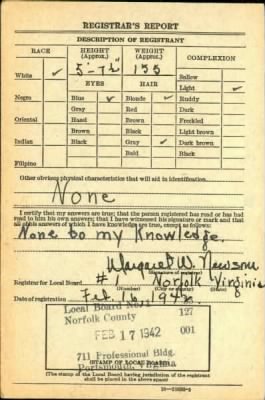 REGISTRAR'S REPORT
DESCRIPTION OF REGISTRANT
RACE HEIGHT (Approx.) WEIGHT (Approx.) COMPLEXION
White ✓ 5'-7½" 155 Sallow
EYES HAIR Light ✓
Negro Blue ✓ Blonde ✓ Ruddy
Gray Red Dark
Oriental Hazel Brown Freckled
Brown Black Light brown
Indian Black Gray ✓ Dark brown
Bald Black
Filipino
Other obvious physical characteristics that will aid in identification
None
I certify that my answers are true; that the person registered has read or has had
read to him his own answers; that I have witnessed his signature or mark and that
all of his answers of which I have knowledge are true, except as follows:
None to my Knowledge.
Margaret W. Newsome
(Signature of registrar)
Registrar for Local Board #1 Norfolk Virginia
(Number) (City or county) (State)
Date of registration Feb. 16, 1942
Local Board No. 1
Norfolk County 127
FEB 17 1942 001
711 Professional Bldg.
Portsmouth, Virginia
(STAMP OF LOCAL BOARD)
(The stamp of the Local Board having jurisdiction of the registrant
shall be placed in the above space)